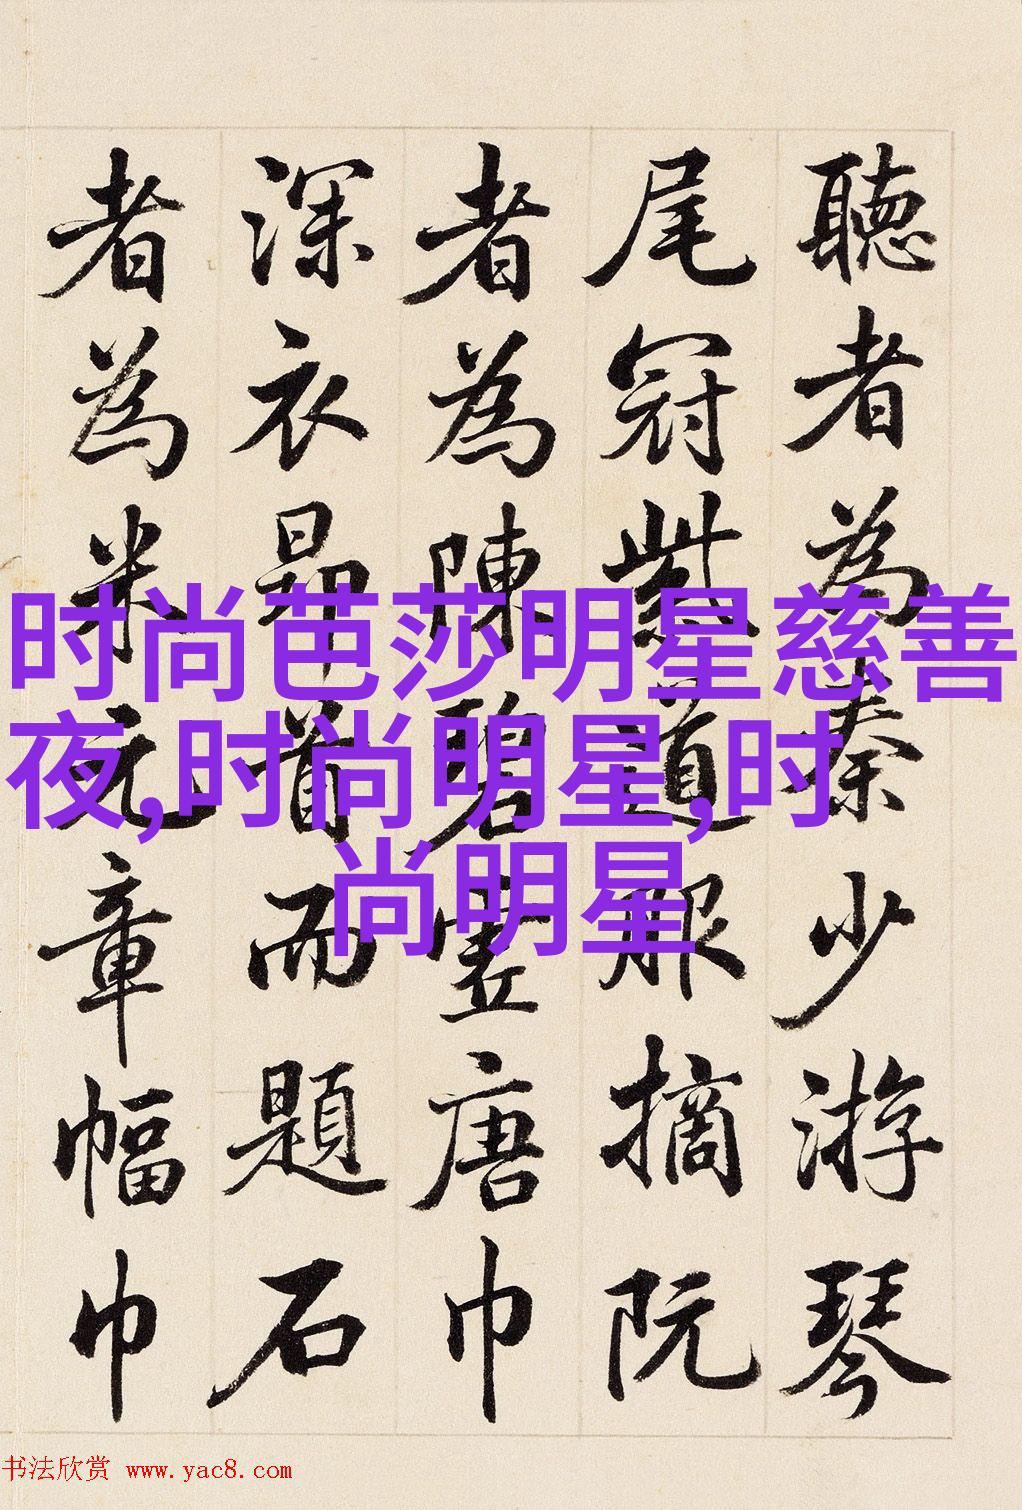 聽者為秦少游琴
尾冠紫道服摘阮
者為陳碧虛唐巾
深衣昂首而題石
者為米元章幅巾
时尚芭莎明星慈善
夜,时尚明星,时
尚明星
书法欣赏 www.yac8.com